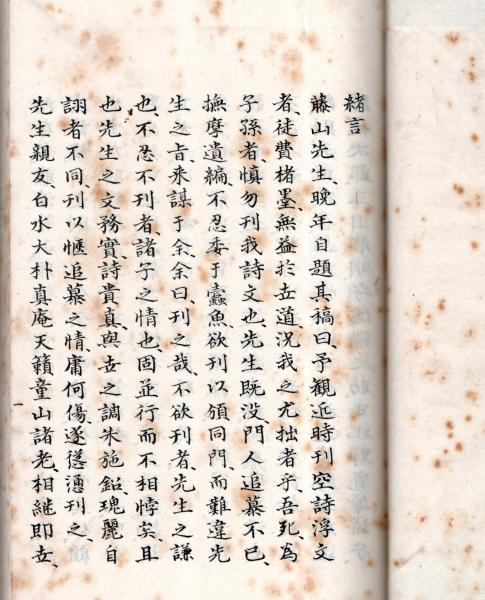 緒言
藤山先生晩年自題其稿曰予観近時刊空詩浮文
者、徒費楮墨、無益於世道、況我之尤拙者乎、吾死、為
子孫者、慎勿刊我詩文也、先生既没、門人追慕不已、
撫摩遺編、不忍委于蠹魚、欲刊以頒同門、而難違先
生之旨、来謀于余、余曰、刊之哉、不欲刊者、先生之謙
也、不忍不刊者、諸子之情也、固並行而不相悖矣、且
也先生之文務實、詩貴真、與世之調朱施鉛、瑰麗自
詡者不同、刊以愜追慕之情、庸何傷、遂慫慂刊之、
先生親友、白水大朴真庵天籟童山諸老、相継即世、